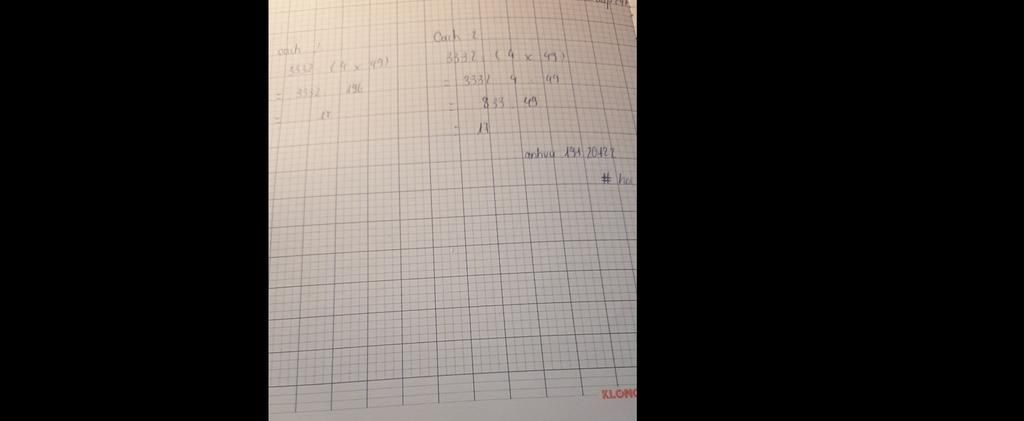 cach 1
3332 (4 x 49)
= 3332 196
= 17
Cach 2
3332 (4 x 49)
= 3332 4 49
= 833 49
= 17
anhvu 191 2012
#
KLONG